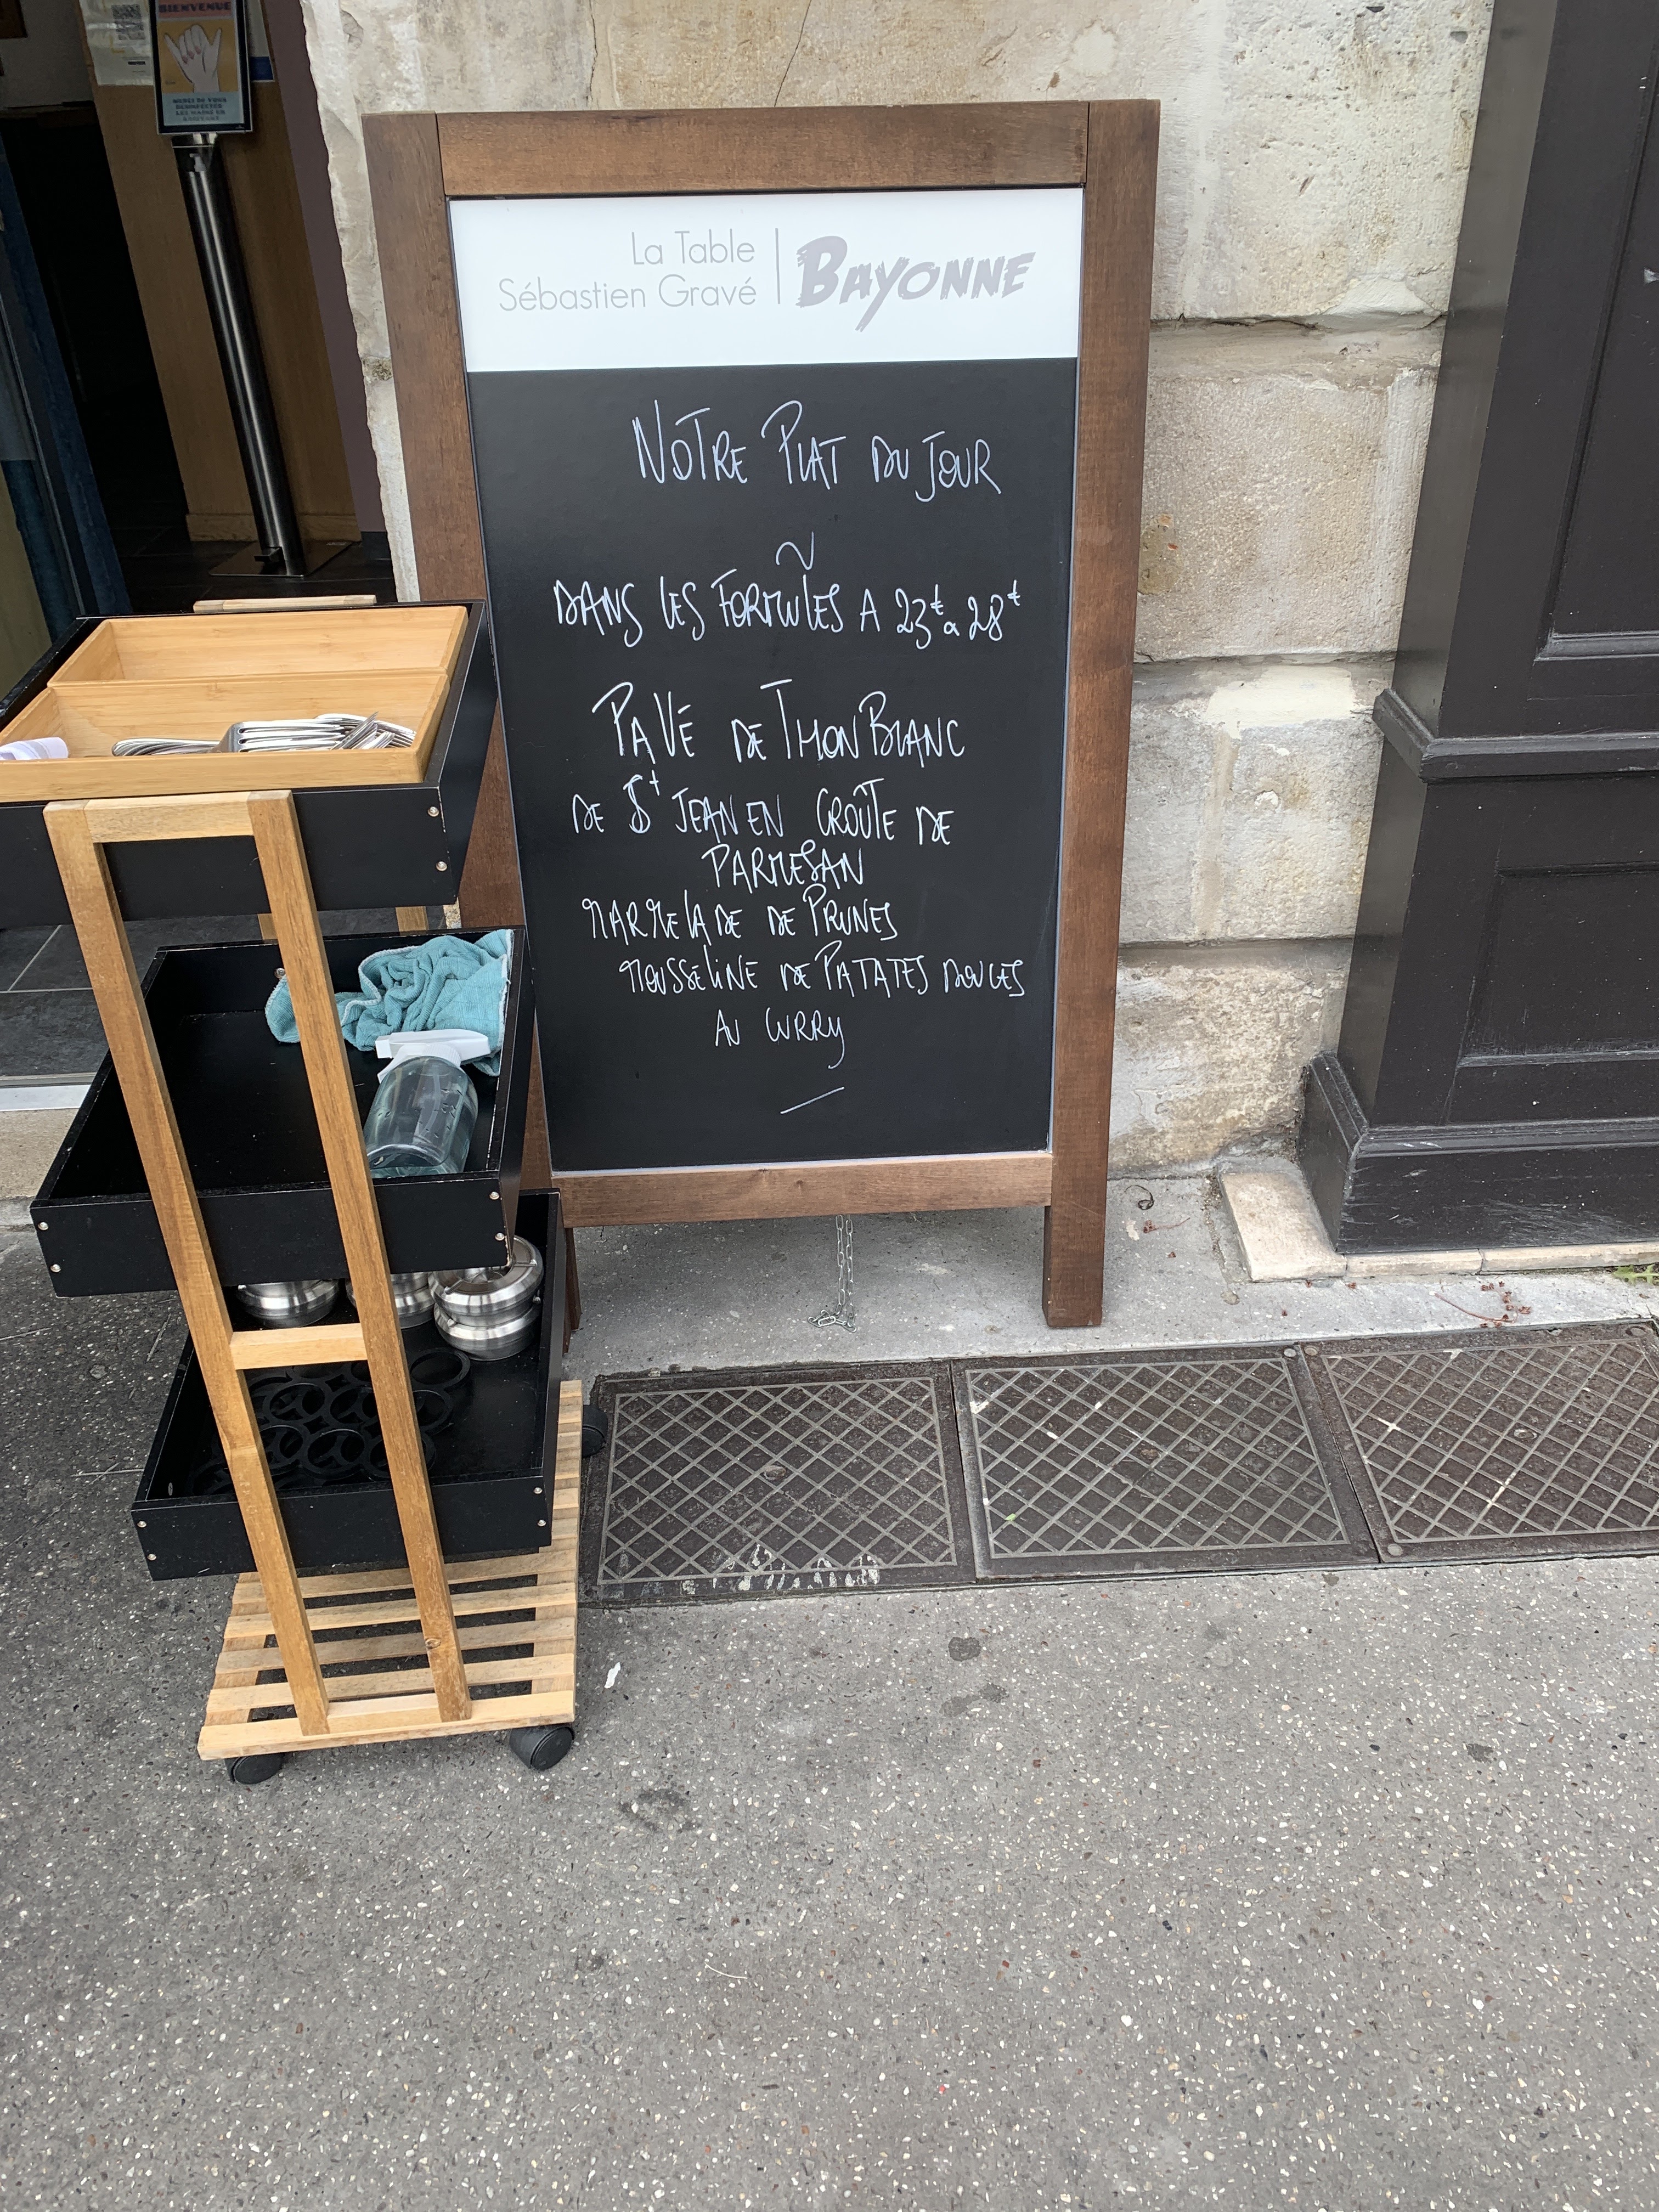 BIENVENUE
La Table
Sébastien Gravé
BAYONNE
NOTRE PLAT DU JOUR
~
DANS LES FORMULES A 23€ a 28€
PAVÉ DE THON BLANC
DE St JEAN EN CROÛTE DE
PARMESAN
MARMELADE DE PRUNES
MOUSSELINE DE PATATES DOUCES
AU CURRY